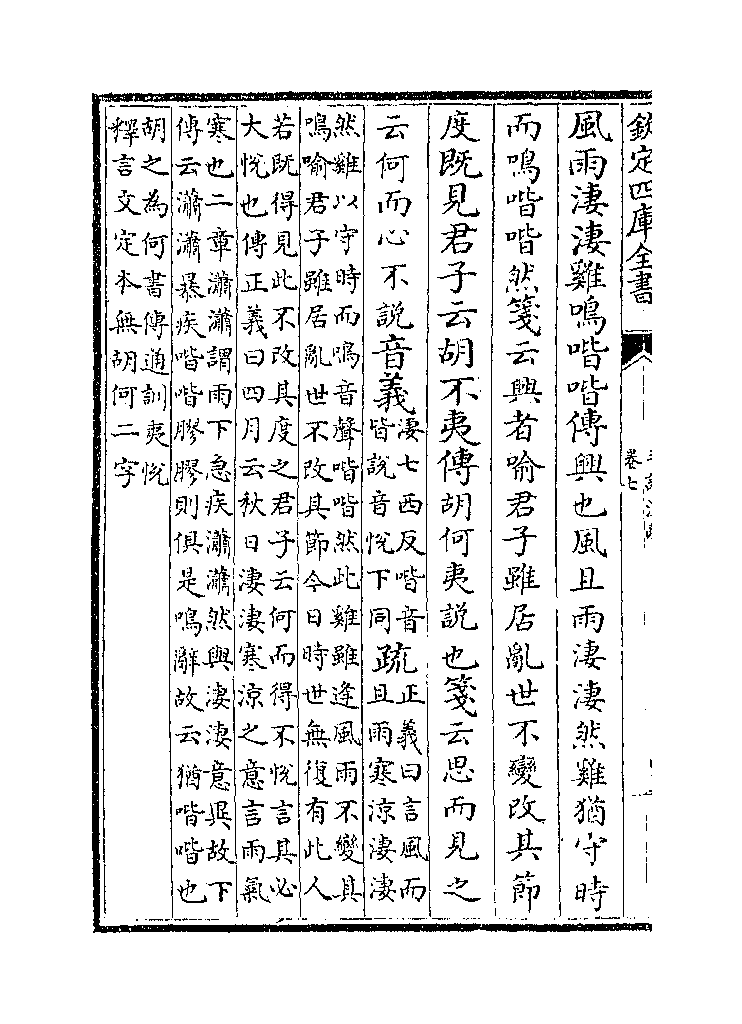 欽定四庫全書
卷七
風雨淒淒雞鳴喈喈傳興也風且雨淒淒然雞猶守時
而鳴喈喈然箋云興者喻君子雖居亂世不變改其節
度既見君子云胡不夷傳胡何夷説也箋云思而見之
云何而心不説音義淒七西反喈音皆説音悦下同疏正義曰言風而且雨寒涼淒淒
然雞以守時而鳴音聲喈喈然此雞雖逢風雨不變其
鳴喻君子雖居亂世不改其節今日時世無復有此人
若既得見此不改其度之君子云何而得不悦言其必
大悦也傳正義曰四月云秋日淒淒寒涼之意言雨氣
寒也二章瀟瀟謂雨下急疾瀟瀟然與淒淒意異故下
傳云瀟瀟暴疾喈喈膠膠則俱是鳴辭故云猶喈喈也
胡之為何書傳通訓夷悦
釋言文定本無胡何二字